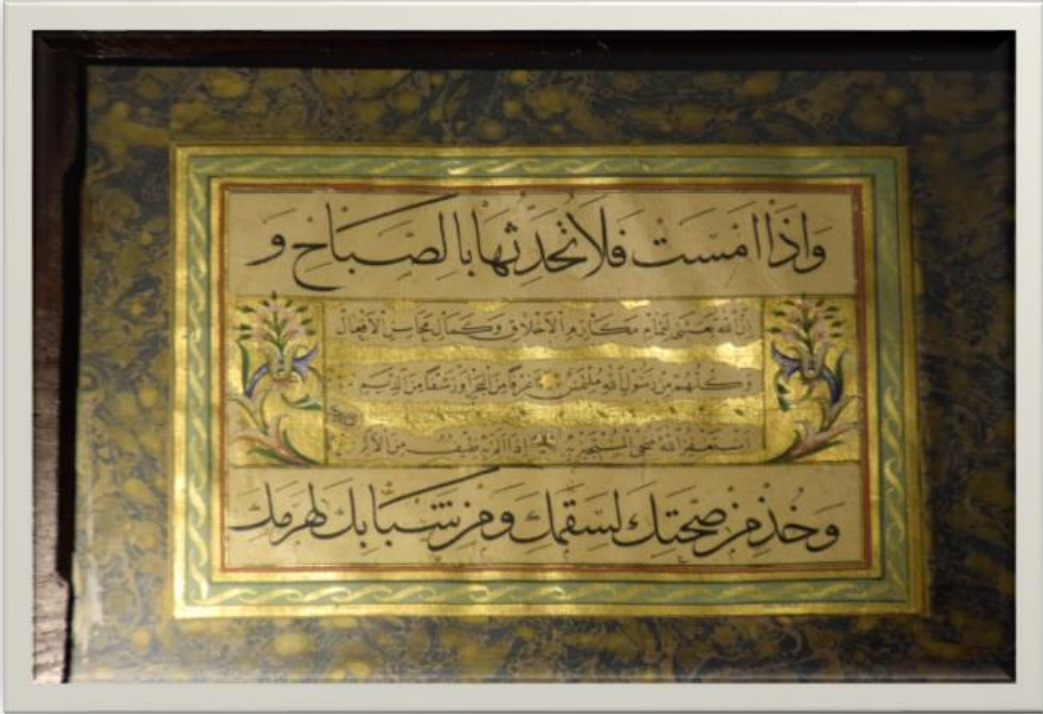 وَاِذَا امْسَيْتَ فَلَا تُحَدِّثْهَا بِالصَّبَاحِ وَ
اِنَّ اللهَ بَعَثَنِي لِتَمَامِ مَكَارِمِ الْاَخْلَاقِ وَكَمَالِ مَحَاسِنِ الْاَفْعَالِ
وَكُلُّهُمْ مِنْ رَسُولِ اللهِ مُلْتَمِسٌ غَرْفًا مِنَ الْبَحْرِ اَوْ رَشْفًا مِنَ الدِّيَمِ
اَسْتَغْفِرُ اللهَ اِذَا اَلَمَّ طَيْفٌ مِنَ
وَخُذْ مِنْ صِحَّتِكَ لِسَقَمِكَ وَمِنْ شَبَابِكَ لِهَرَمِكَ